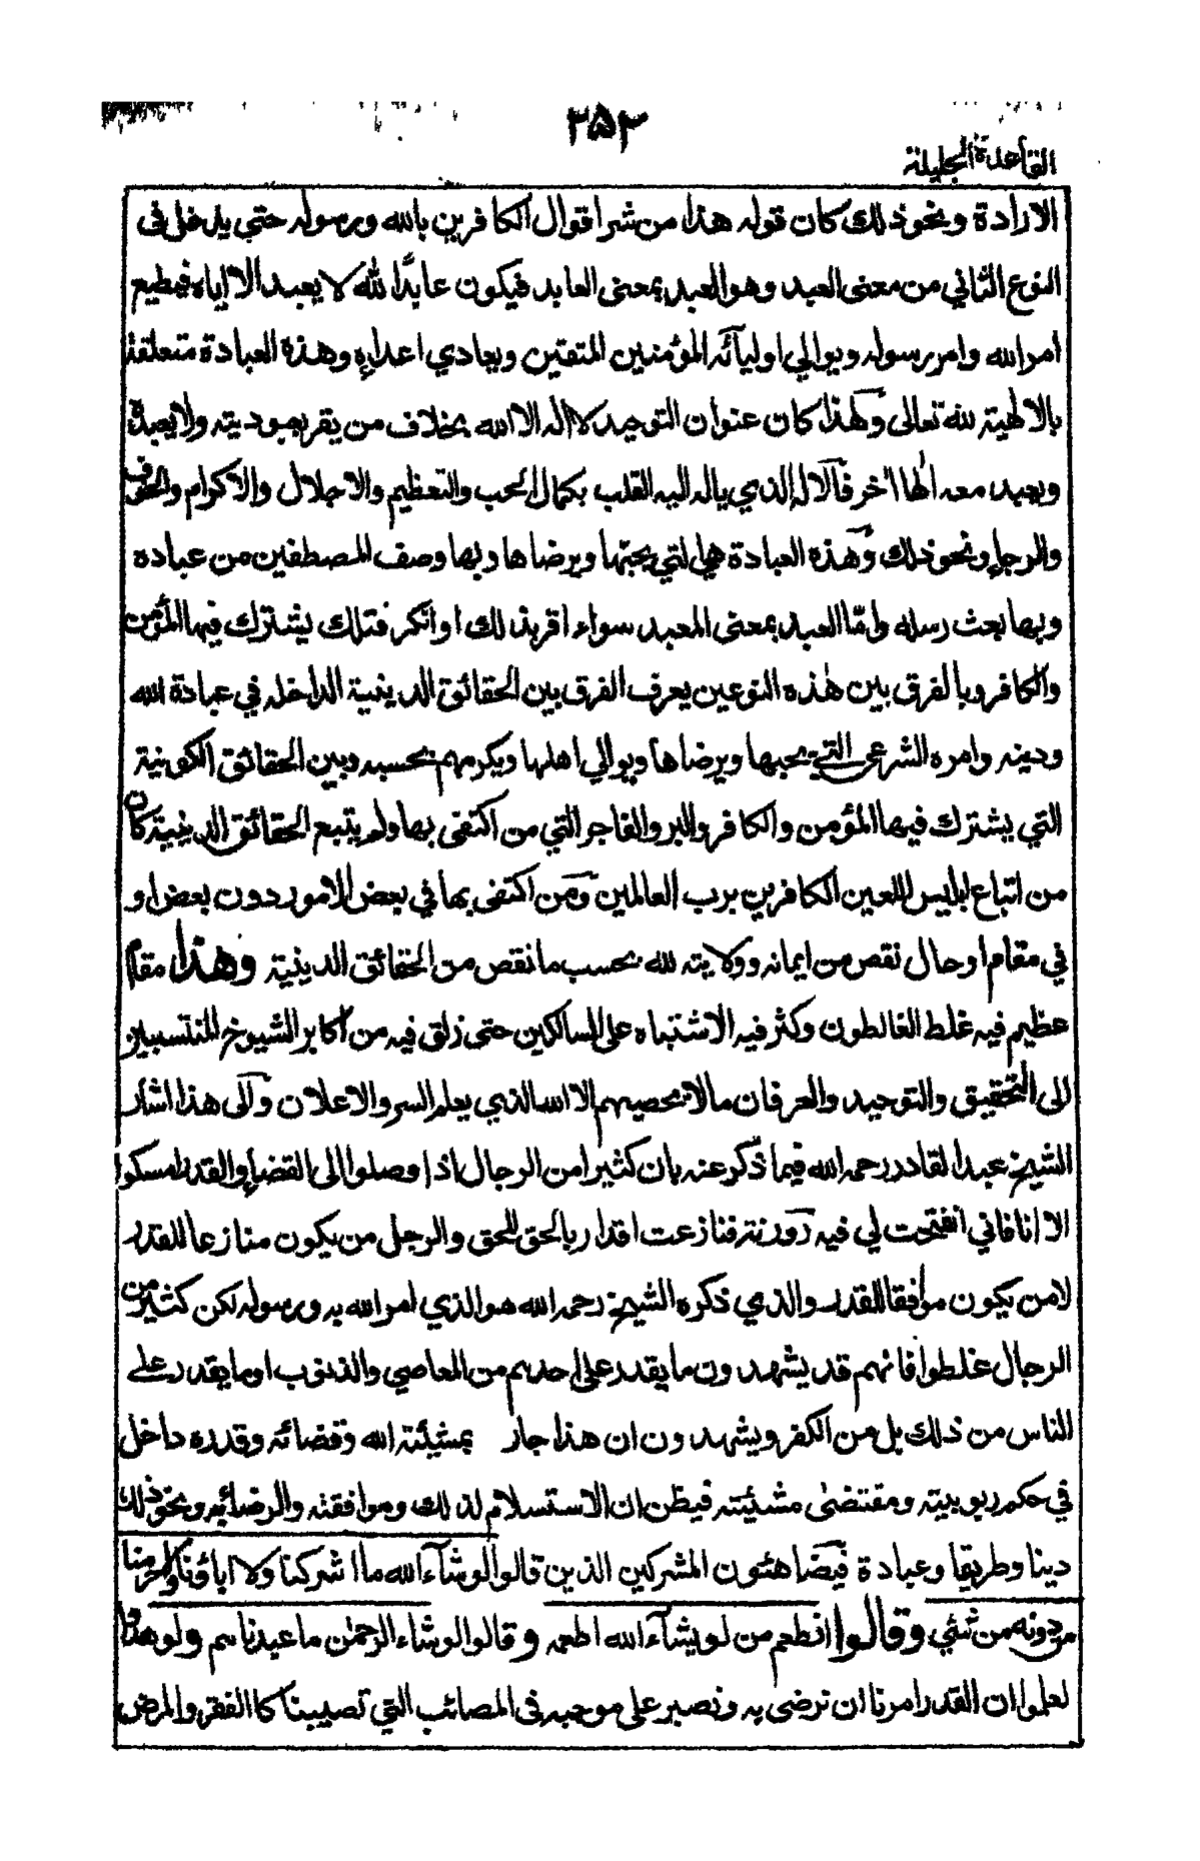 ٣٥٢
القاعدة الجليلة
الارادة ونحو ذلك كان قوله هذا من شر اقوال الكافرين بالله ورسوله حتي يدخل في
النوع الثاني من معنى العبد وهو العبد بمعنى العابد فيكون عابدًا لله لا يعبد الا اياه فيطيع
امر الله وامر رسوله ويوالي اوليآئه المؤمنين المتقين ويعادي اعداءه وهذه العبادة متعلقة
بالالهية لله تعالى ولهذا كان عنوان التوحيد لا اله الا الله بخلاف من يقر بربوبيته ولا يعبده
ويعبد معه الٰها اخر فالاله الذي يالهه القلب بكمال الحب والتعظيم والاجلال والاكرام والخوف
والرجاء ونحو ذلك وهذه العبادة هي التي يحبها ويرضاها وبها وصف المصطفين من عباده
وبها بعث رسله وامّا العبد بمعنى المعبد سواء اقر بذلك او انكر فتلك يشترك فيها المؤمن
والكافر وبالفرق بين هٰذه النوعين يعرف الفرق بين الحقائق الدينية الداخله في عبادة الله
ودينه وامره الشرعى التي يحبها ويرضاها ويوالي اهلها ويكرمهم بحسبه وبين الحقائق الكونية
التي يشترك فيها المؤمن والكافر والبر والفاجر التي من اكتفى بها ولم يتبع الحقائق الدينية كان
من اتباع ابليس اللعين الكافرين برب العالمين ومن اكتفى بها في بعض الامور دون بعض او
في مقام او حال نقص من ايمانه وولايته لله بحسب ما نقص من الحقائق الدينية وهذا مقام
عظيم فيه غلط الغالطون وكثر فيه الاشتباه على السالكين حتى زلق فيه من اكابر الشيوخ المنتسبين
الى التحقيق والتوحيد والعرفان مالا يحصيهم الا الله الذي يعلم السر والاعلان والى هذا اشار
الشيخ عبد القادر رحمه الله فيما ذكر عنه بان كثيرا من الرجال اذا وصلوا الى القضاء والقدر امسكوا
الا انا فاني انفتحت لي فيه روزنة فنازعت اقدار بالحق للحق والرجل من يكون منازعا للقدر
لا من يكون موافقا للقدر والذي ذكره الشيخ رحمه الله هو الذي امر الله به ورسوله لكن كثير من
الرجال غلطوا فانهم قد يشهدون ما يقدر على احدهم من المعاصي والذنوب او ما يقدر على
الناس من ذلك بل من الكفر ويشهدون ان هذا جار بمشيئة الله وقضائه وقدره داخل
في حكم ربوبيته ومقتضىٰ مشئيته فيظن ان الاستسلام لذلك وموافقته والرضاء به ونحو ذلك
دينا وطريقا وعبادة فيضاهئون المشركين الذين قالوا لو شآء الله ما اشركنا ولا اباؤنا ولا حرمنا
من دونه من شئي وقالوا انطعم من لو يشآء الله اطعمه وقالوا لو شاء الرحمٰن ما عبدناهم ولو هدوا
لعلموا ان القدر امرنا ان نرضى به ونصبر على موجبه في المصائب التي تصيبنا كالفقر والمرض